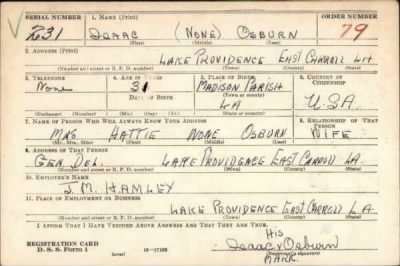 SERIAL NUMBER 1. NAME (Print) ORDER NUMBER
231 ISAAC (NONE) OSBURN 79
(First) (Middle) (Last)
2. ADDRESS (Print)
LAKE PROVIDENCE EAST CARROLL LA.
(Number and street or R. F. D. number) (Town) (County) (State)
3. TELEPHONE 4. AGE IN YEARS 5. PLACE OF BIRTH 6. COUNTRY OF CITIZENSHIP
None 31 MADISON PARISH
DATE OF BIRTH (Town or county)
LA U.S.A.
(State or country)
7. NAME OF PERSON WHO WILL ALWAYS KNOW YOUR ADDRESS 8. RELATIONSHIP OF THAT PERSON
MRS HATTIE NONE OSBURN WIFE
(Mr., Mrs., Miss) (First) (Middle) (Last)
9. ADDRESS OF THAT PERSON
GEN. DEL. LAKE PROVIDENCE EAST CARROLL LA.
(Number and street or R. F. D. number) (Town) (County) (State)
10. EMPLOYER'S NAME
J. M. HAMLEY
11. PLACE OF EMPLOYMENT OR BUSINESS
LAKE PROVIDENCE EAST CARROLL LA
(Number and street or R. F. D. number) (Town) (County) (State)
I AFFIRM THAT I HAVE VERIFIED ABOVE ANSWERS AND THAT THEY ARE TRUE.
HIS
REGISTRATION CARD Isaac x Osburn
D. S. S. Form 1 (Registrant's signature)
MARK